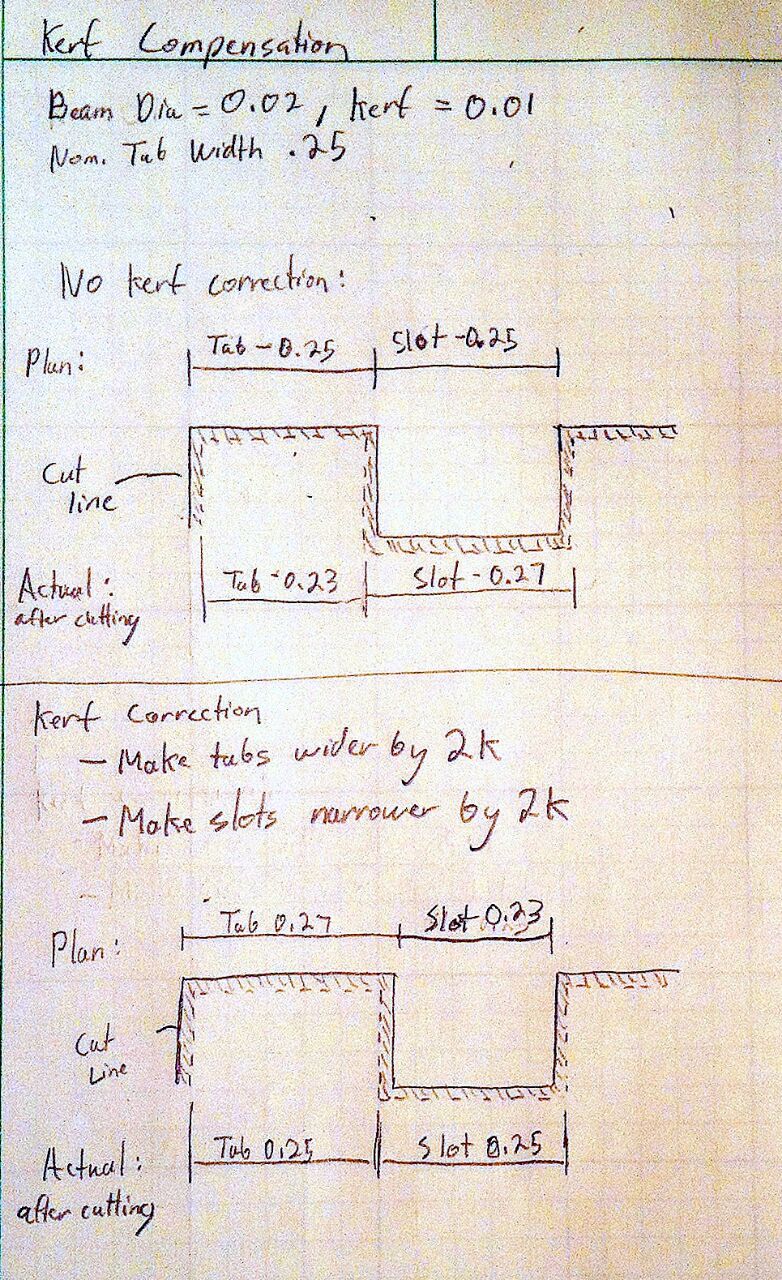 Kerf Compensation
Beam Dia = 0.02, kerf = 0.01
Nom. Tab Width .25
No kerf correction:
Plan:
Tab - 0.25
Slot - 0.25
Cut
line
Actual:
after cutting
Tab - 0.23
Slot - 0.27
Kerf Correction
- Make tabs wider by 2k
- Make slots narrower by 2k
Plan:
Tab 0.27
Slot 0.23
Cut
Line
Actual:
after cutting
Tab 0.25
Slot 0.25